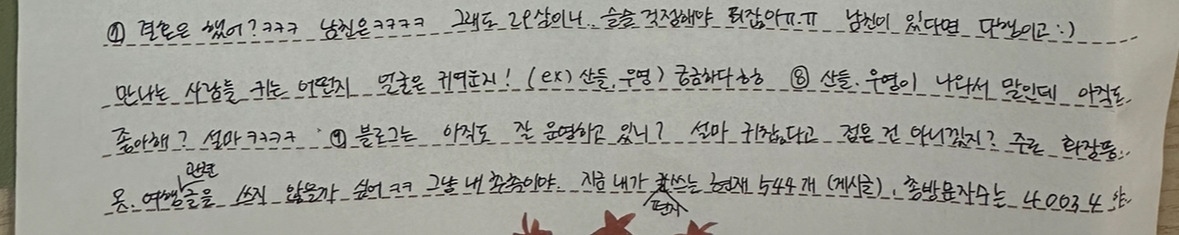 ⑦ 결혼은 했어?ㅋㅋㅋ 남친은ㅋㅋㅋㅋ 그래도 29살이니.. 슬슬 걱정해야 되잖아ㅠ.ㅠ 남친이 있다면 다행이고 :)
만나는 사람들 키는 어떤지 얼굴은 귀여운지! (ex) 산들, 우영) 궁금하다ㅎㅎ ⑧ 산들, 우영이 나와서 말인데 아직도
좋아해? 설마ㅋㅋㅋㅋ ⑨ 블로그는 아직도 잘 운영하고 있니? 설마 귀찮다고 접은 건 아니겠지? 주로 화장품,
옷, 여행 관련 글을 쓰지 않을까 싶어ㅋㅋ 그냥 내 추측이야. 지금 내가 편지 쓰는 현재 544개 (게시글), 총방문자수는 4003.4